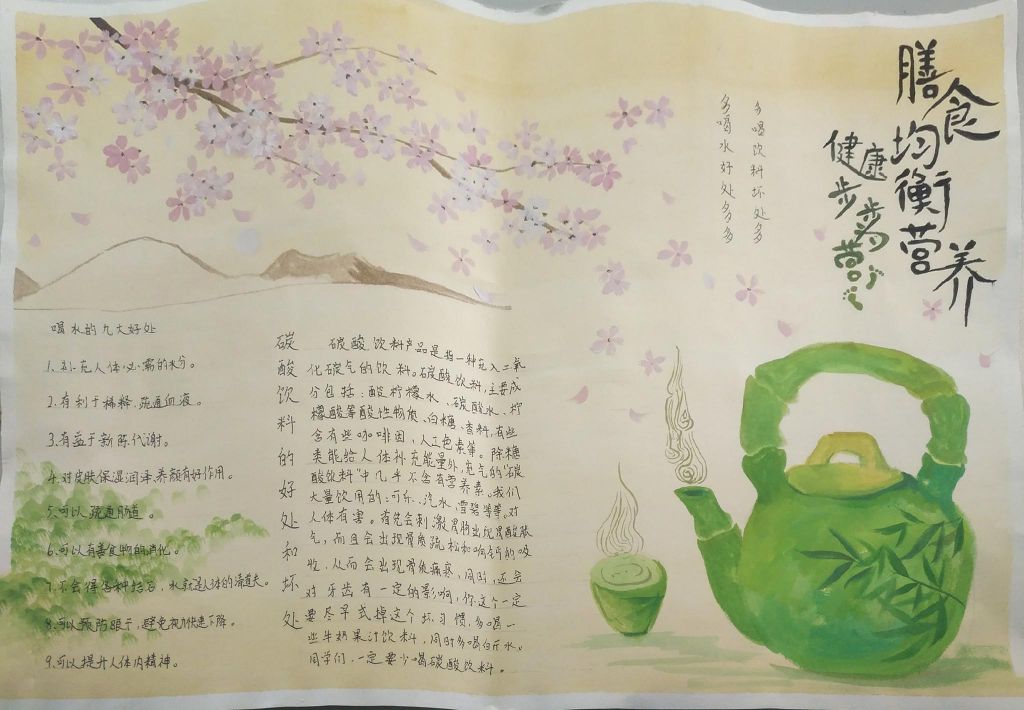 膳食均衡营养
健康步步为营
多喝饮料坏处多
多喝水好处多多
喝水的九大好处
1、补充人体必需的水分。
2.有利于稀释、疏通血液。
3.有益于新陈代谢。
4.对皮肤保湿润泽养颜有好作用。
5.可以疏通肠道。
6.可以有善食物的消化。
7.不会得各种结石，水就是人体的清道夫。
8.可以预防眼干，避免视力快速下降。
9.可以提升人体内精神。
碳酸饮料的好处和坏处
碳酸饮料产品是指一种充入二氧
化碳气的饮料。碳酸饮料，主要成
分包括：酸柠檬水、碳酸水、柠
檬酸等酸性物质、白糖、香料，有些
含有些咖啡因，人工色素等。除糖
类能给人体补充能量外，充气的"碳
酸饮料"中几乎不含有营养素。我们
大量饮用的：可乐、汽水、雪碧等等，对
人体有害。首先会刺激胃肠出现胃酸胀
气，而且会出现骨质疏松和响钙的吸
收，从而会出现骨质痛疼，同时，还会
对牙齿有一定的影响，你这个一定
要尽早式掉这个坏习惯，多喝一
些牛奶果汁饮料，同时多喝白开水。
同学们，一定要少喝碳酸饮料。